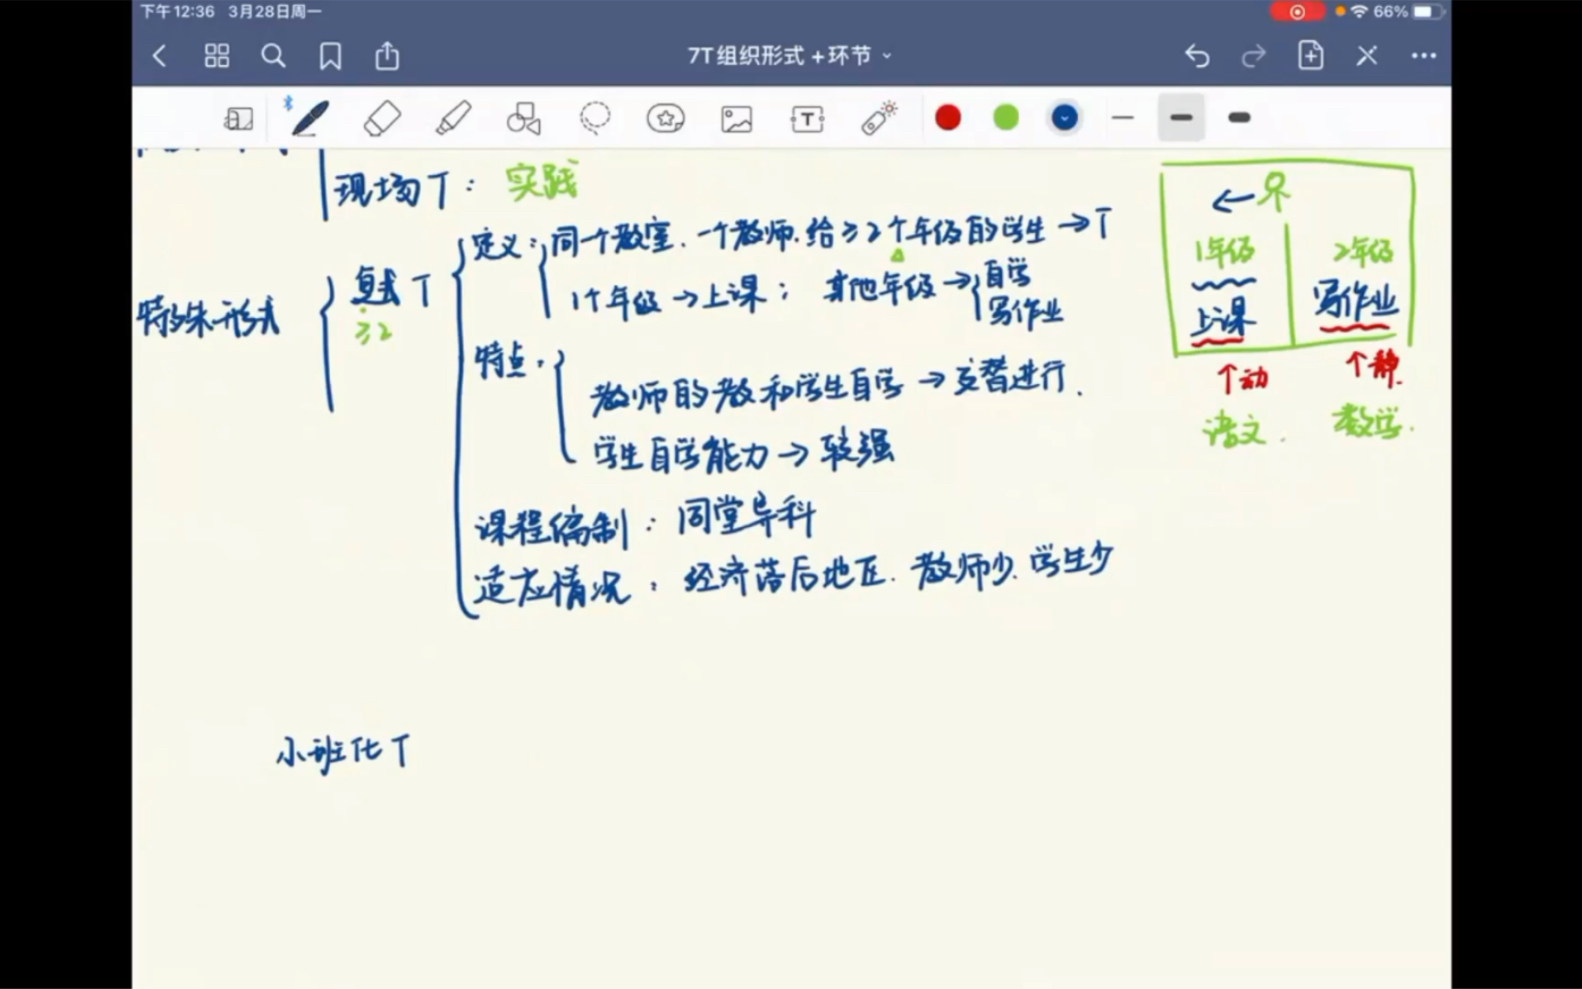 下午12:36 3月28日周一
66%
7T组织形式+环节
现场T：实践
特殊形式
复式T
≥2
定义：同一个教室、一个教师、给≥2个年级的学生→T
1个年级→上课；其他年级→自学
写作业
特点：
教师的教和学生自学→交替进行.
学生自学能力→较强
课程编制：同堂异科
适应情况：经济落后地区.教师少.学生少
小班化T
1年级 2年级
上课 写作业
↑动 ↑静.
语文. 数学.